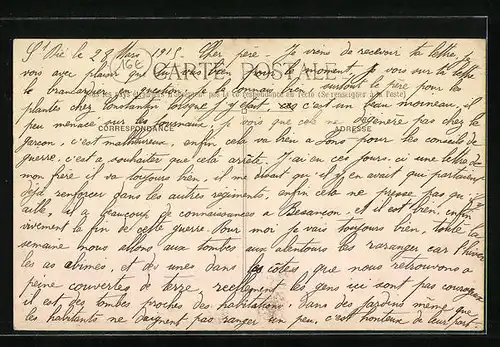 St Dié le 29 Mars 1915. Cher père. Je viens de recevoir ta lettre, je
16E
vois avec plaisir que tu vas bien pour le moment. Je vois sur ta lettre
CARTE POSTALE
le question, je connais bien, surtout le père pour les
plantes chez Constantin lorsque j'y étais, c'est un beau morneau, il
peu menace, sur les journaux. Je vois que cela ne dégénère pas chez le
CORRESPONDANCE ADRESSE
garçon, c'est malheureux, enfin cela va bien à Pons pour les conseils de
guerre, c'est à souhaiter que cela arrête. J'ai eu ces jours-ci une lettre de
mon frère il va toujours bien, il me disait qu'il y en avait qui partaient
déjà renforcer dans les autres régiments, enfin cela ne presse pas qu'il y
aille, il a beaucoup de connaissances à Besançon, et il est bien, enfin
vivement la fin de cette guerre. Pour moi je vais toujours bien, toute la
semaine nous allons aux tombes aux alentours les raranger car l'hiver
les as abimés, et des unes dans les côtes, que nous retrouvons à
peine couvertes de terre, réellement les gens ici sont pas courageux
il est des tombes proches des habitations, dans des jardins même que
les habitants ne daignent pas ranger un peu, c'est honteux de leur part-